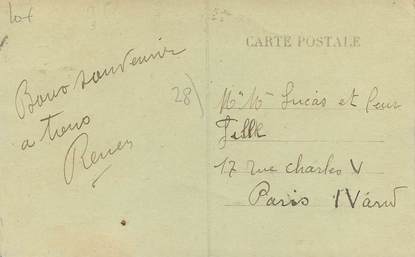 lot
CARTE POSTALE
Bons souvenirs
a tous
Renée
28)
Mr Me Lucas et leur
fille
17 rue charles V
Paris IV arrd